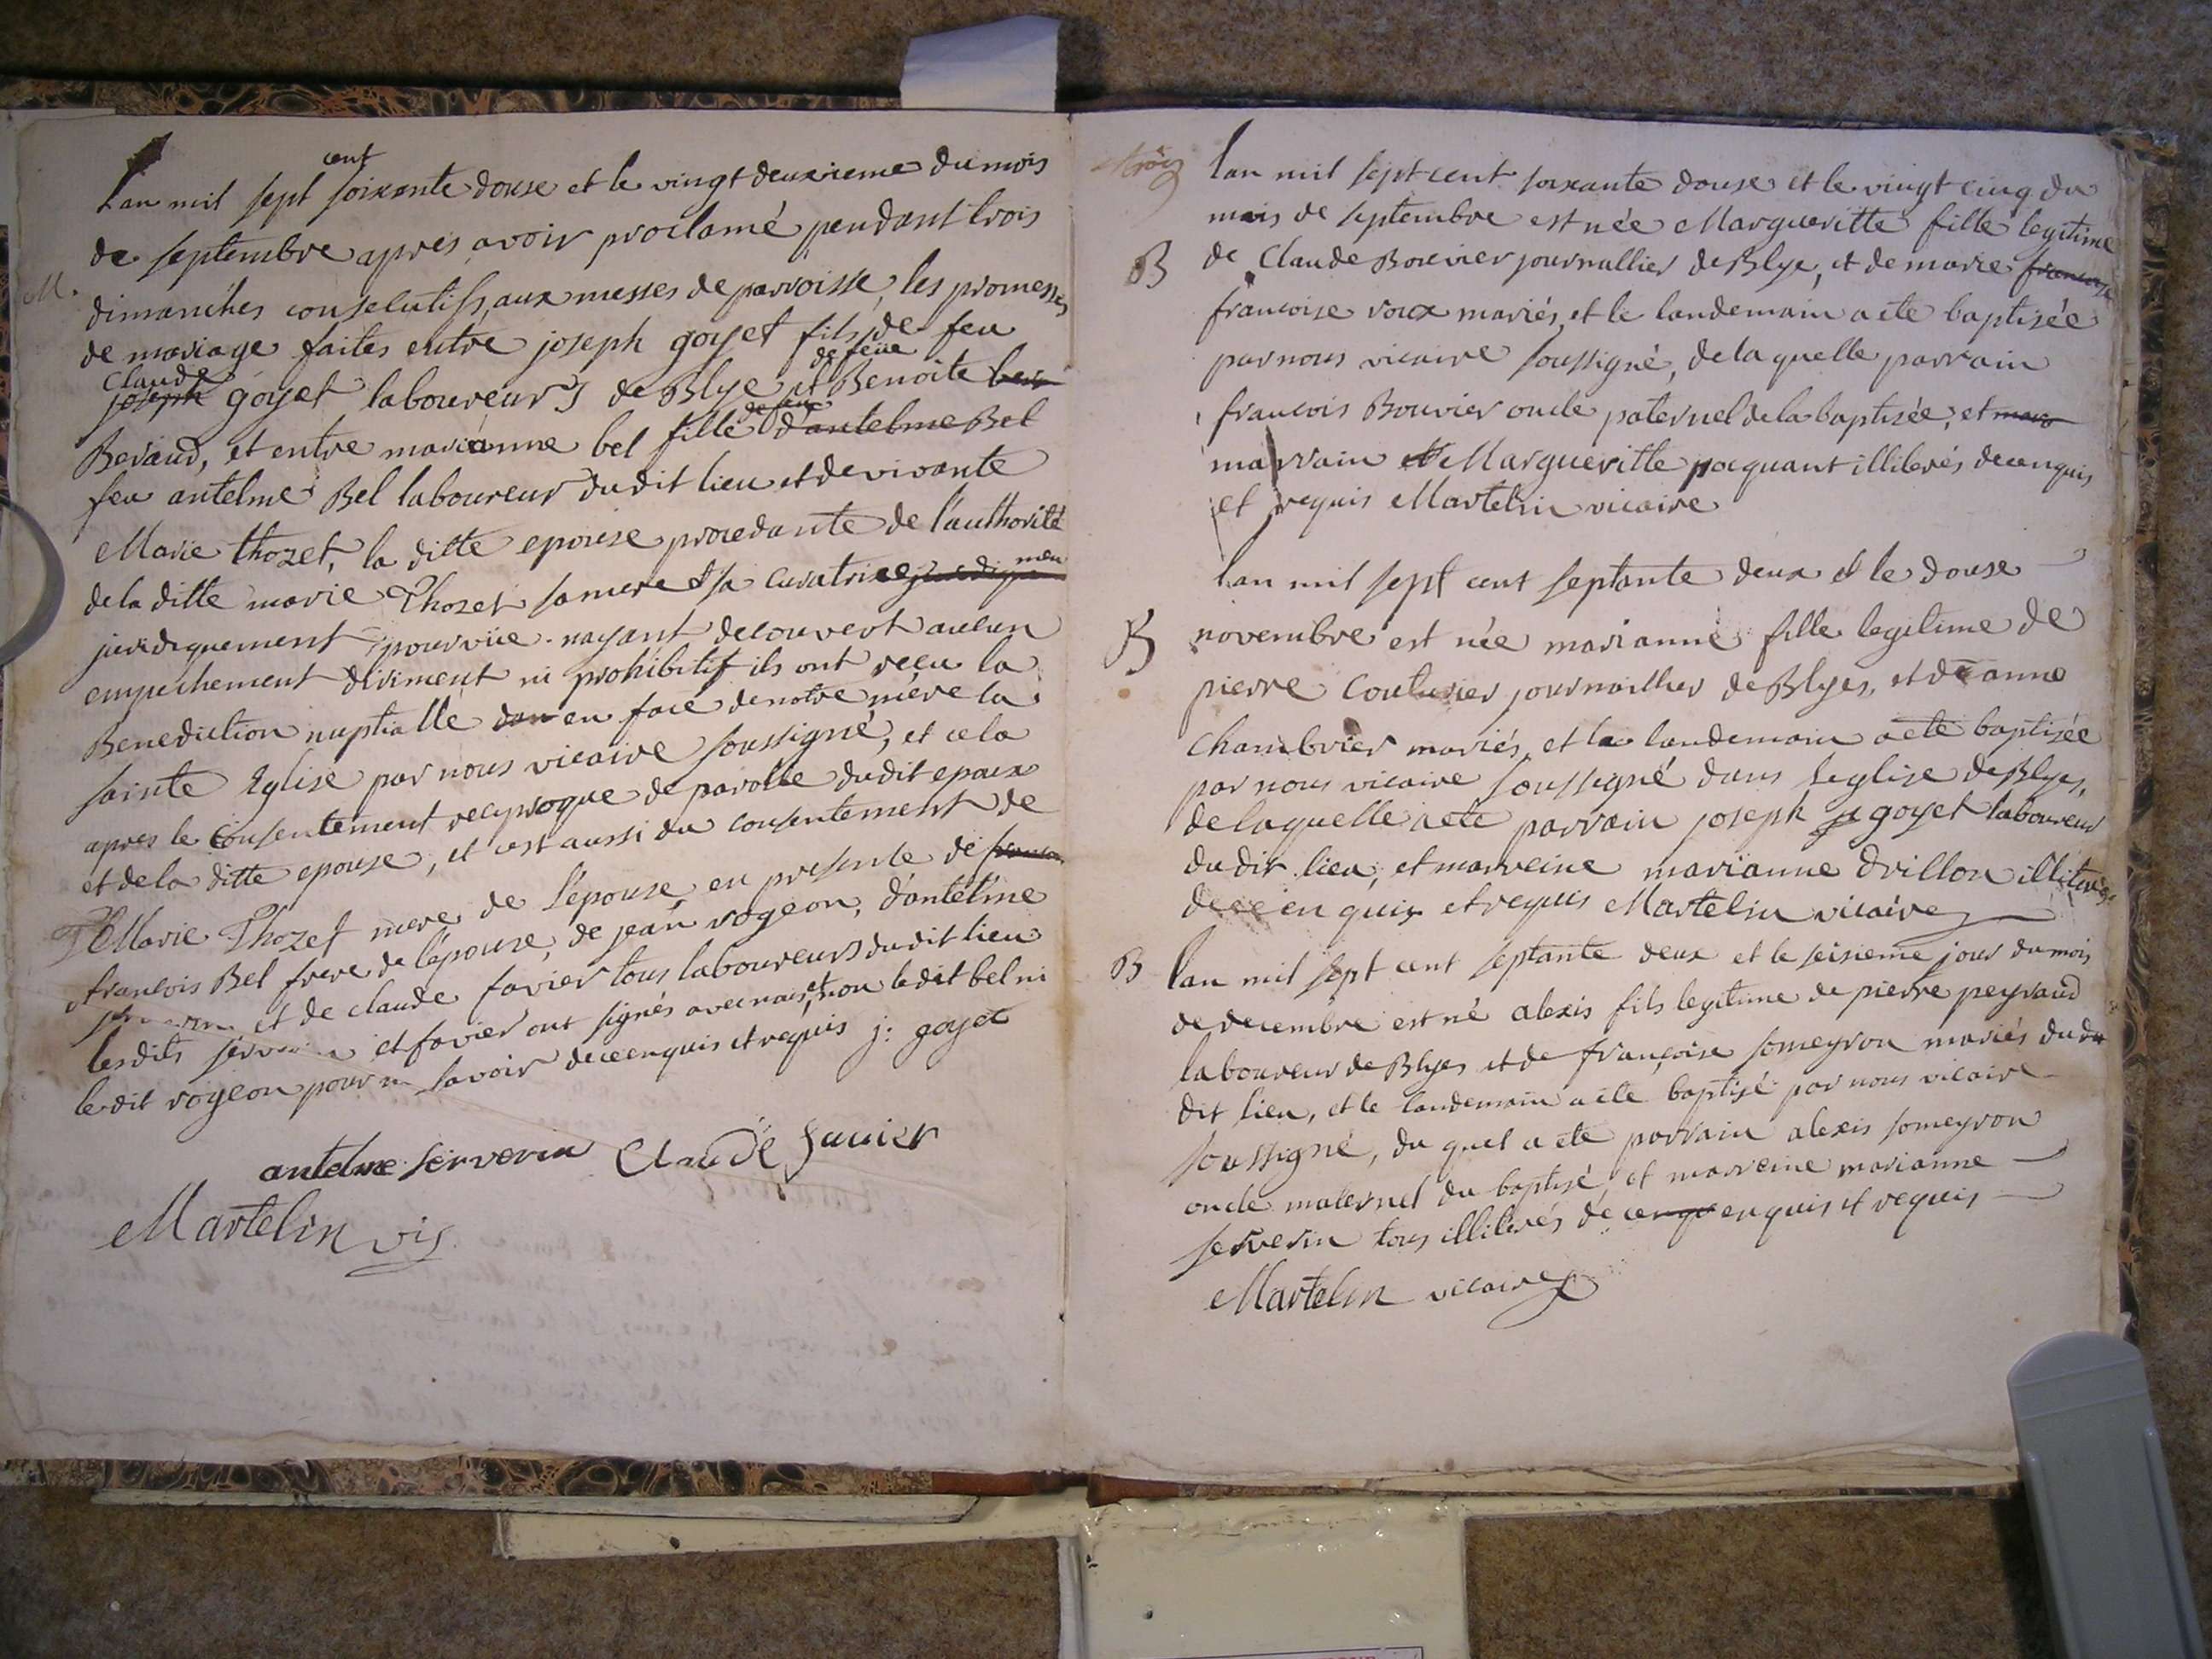 M.
Lan mil sept cent soixante douse et le vingt deuxieme du mois
de septembre apres avoir proclamé pendant trois
dimanches conseluttifs, aux messes de parroisse, les promesses
de mariage faites entre joseph goyet fils de feu
joseph Claude goyet laboureur de Blye et de feüe Benoite
Beraud, et entre marianne bel fille d'antelme Bel de feu
feu antelme Bel laboureur du dit lieu et de vivante
Marie thozet, la ditte epouse procedante de l'authorité
de la ditte marie Thozet sa mere et sa curatrice
juridiquement pourvüe. nayant decouvert aucun
empechement diriment ni prohibitif ils ont reçu la
Benediction nuptialle dan en face de notre mère la
sainte Eglise par nous vicaire soussigné, et cela
apres le consentement recyproque de parolle dudit epoux
et de la ditte epouse, et cest aussi du consentement de
Marie Thozet mere de l'epouse, en presence de
francois Bel frere de l'epouse, de jean vogeon, d'antelme
et de claude favier tous laboureurs du dit lieu
lesdits et favier ont signés avec nous, et non le dit bel ni
le dit vogeon pour ne savoir de ce enquis et requis j: goyet
antelme serverin Claude favier
Martelin vic
B
Lan mil sept cent soixante douse et le vingt cinq du
mois de septembre est née Margueritte fille legitime
de Claude Bouvier journallier de Blye, et de marie francoise
francoise roux mariés, et le landemain a ete baptisée
par nous vicaire soussigné, de la quelle parrain
francois Bouvier oncle paternel de la baptisée, et
marrain Margueritte jocquant illiterés de ce enquis
et requis Martelin vicaire
B
Lan mil sept cent septante deux et le douse
novembre est née marianne fille legitime de
pierre Couturier journaillier de Blyes, et d'anne
Chambrier mariés, et la landemain a ete baptizée
par nous vicaire soussigné dans leglise de Blyes,
de laquelle a ete parrain joseph goyet laboureur
du dit lieu, et marreine marianne drillon illiterés
de ce en quis et requis Martelin vicaire
B
Lan mil sept cent septante deux et le seisieme jour du mois
de decembre est né alexis fils legitime de pierre peyraud
laboureur de Blyes et de françoise someyron mariés du du
dit lieu, et le landemain a ete baptisé par nous vicaire
soussigné, du quel a ete parrain alexis someyron
oncle maternel du baptisé, et marreine marianne
serverin tous illiterés de ce enquis et requis
Martelin vicaire